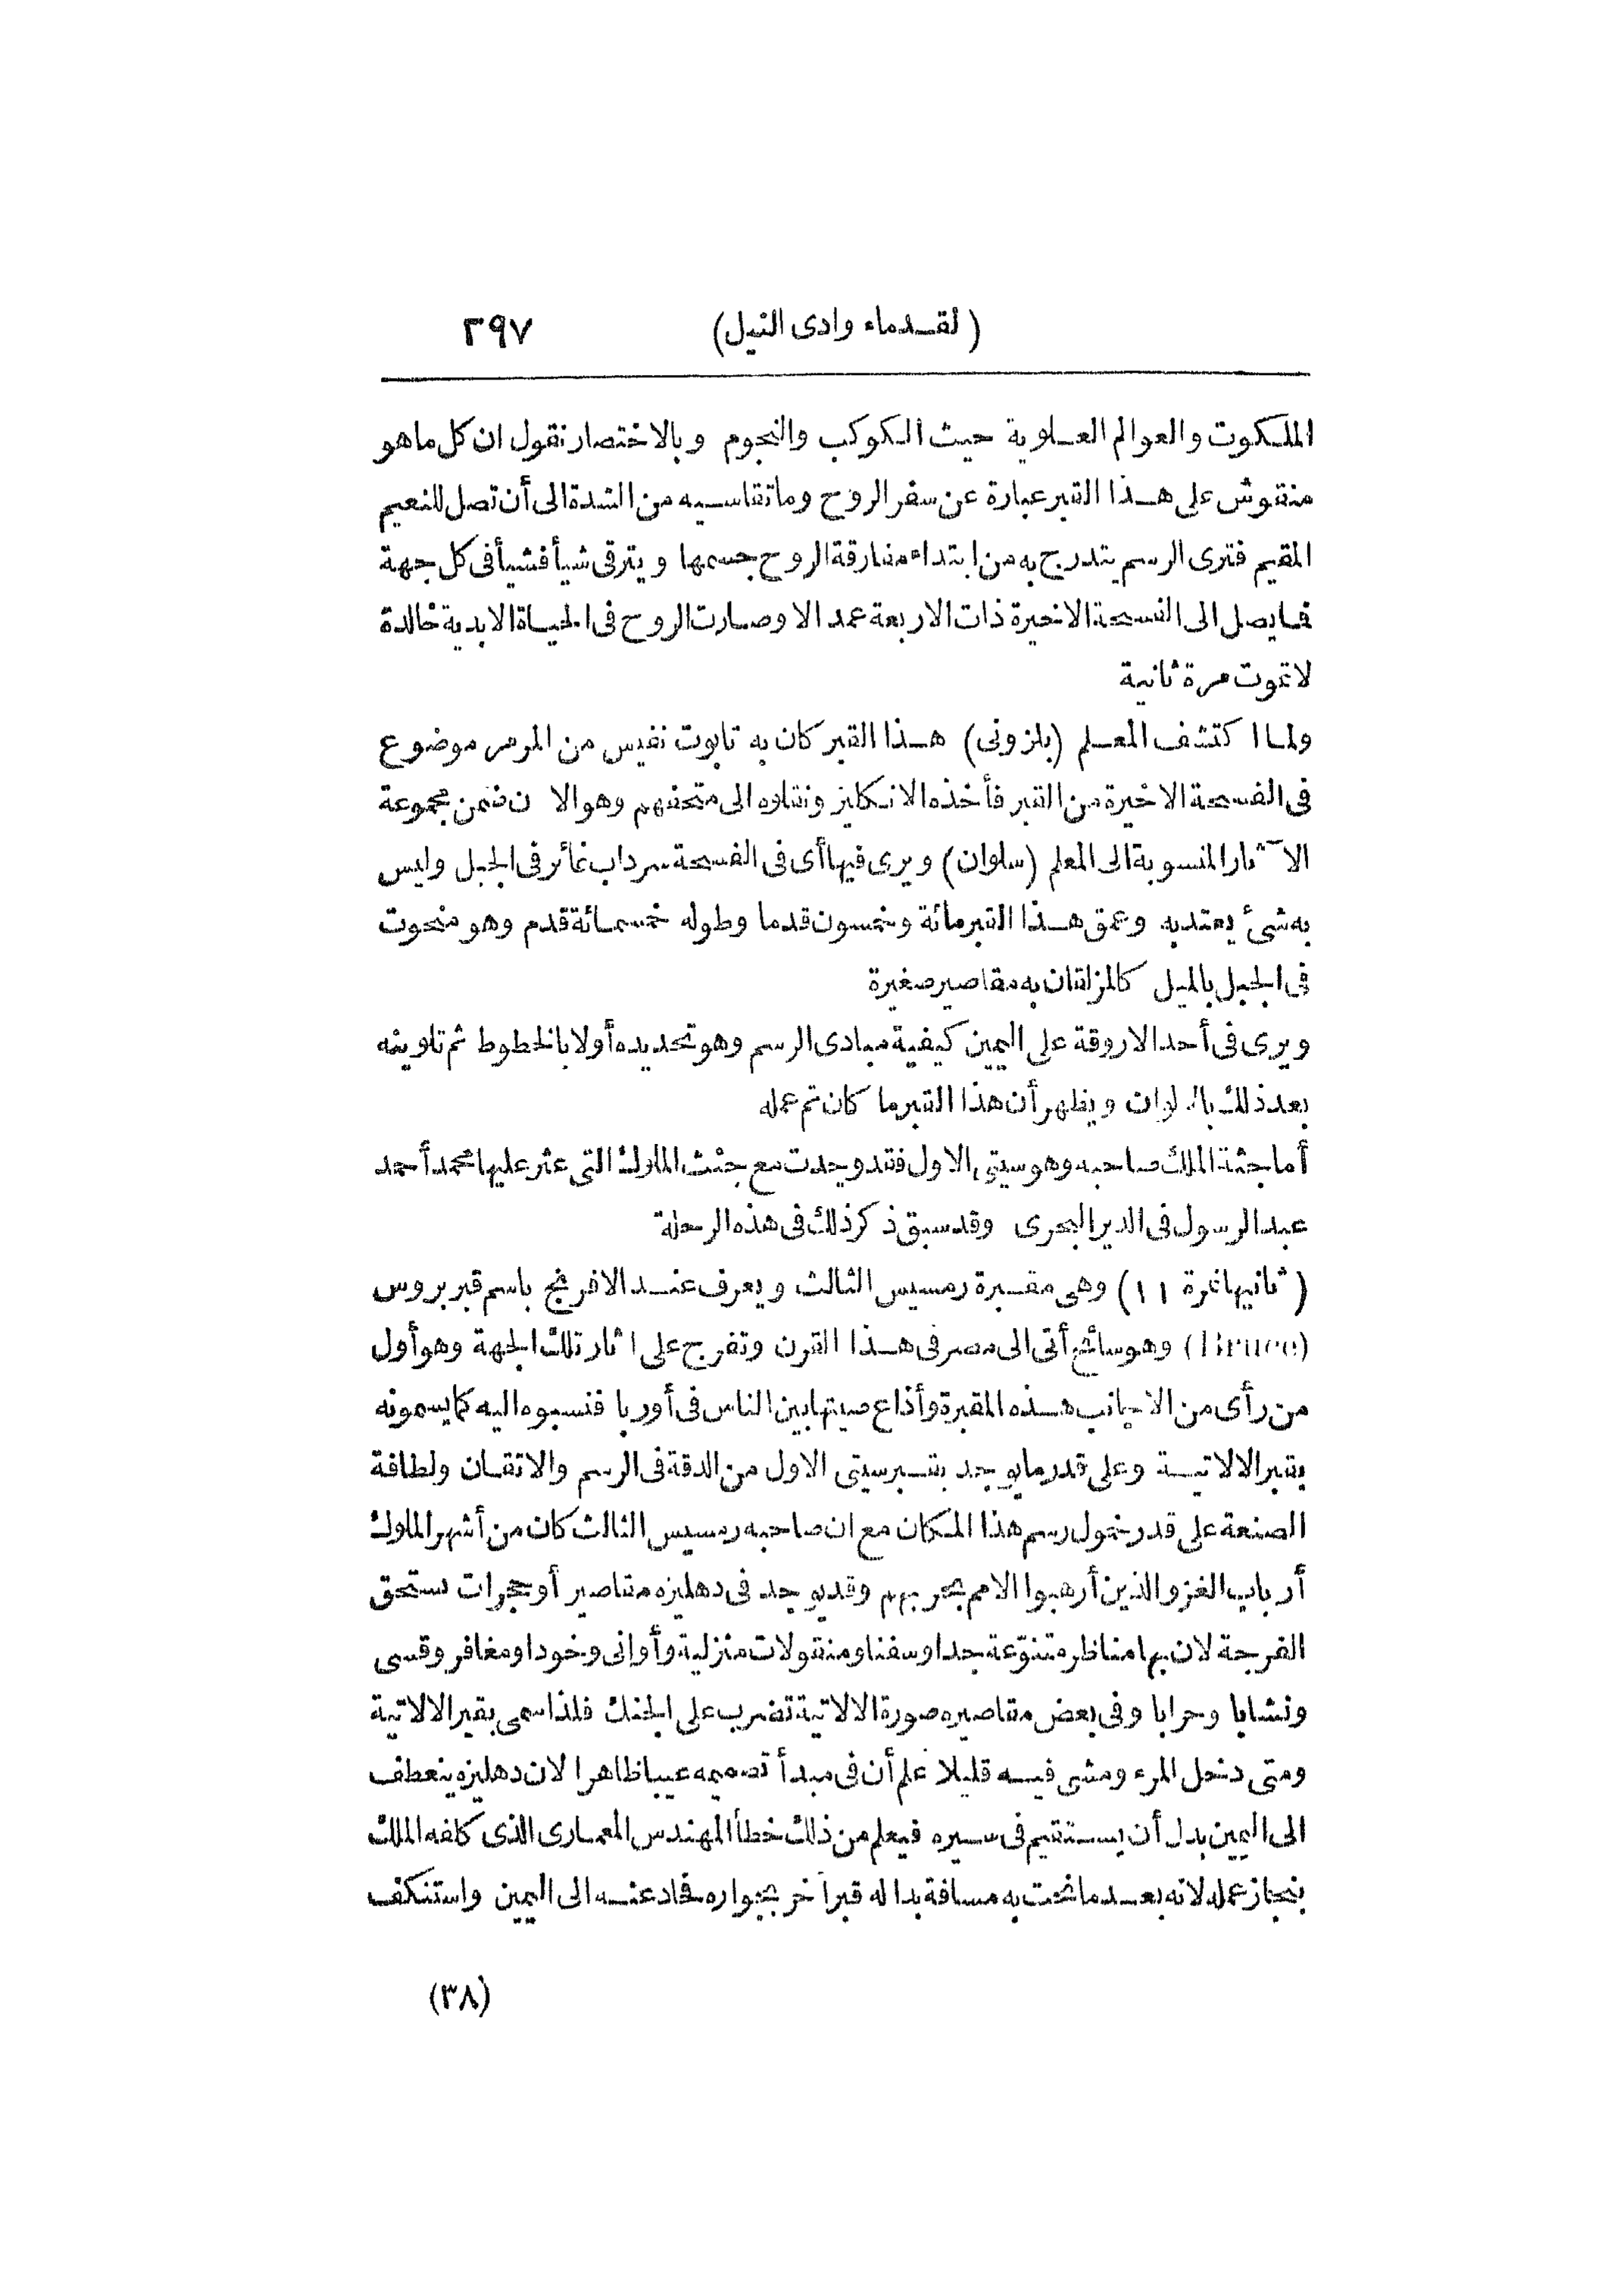 (لقدماء وادى النيل) ٢٩٧
الملكوت والعوالم العلوية حيث الكوكب والنجوم وبالاختصار نقول ان كل ماهو
منقوش على هذا القبر عبارة عن سفر الروح وما تقاسيه من الشدة الى أن تصل للنعيم
المقيم فترى الرسم يتدرج به من ابتداء مفارقة الروح جسمها ويترقى شيأ فشيأ فى كل جهة
فما يصل الى الفسحة الاخيرة ذات الاربعة عمد الا وصارت الروح فى الحياة الابدية خالدة
لا تموت مرة ثانية
ولما اكتشف المعلم (بلزونى) هذا القبر كان به تابوت نفيس من المرمر موضوع
فى الفسحة الاخيرة من القبر فأخذه الانكليز ونقلوه الى متحفهم وهو الا ن ضمن مجموعة
الآثار المنسوبة الى المعلم (سلوان) ويرى فيها أى فى الفسحة سرداب غائر فى الجبل وليس
به شئ يعتد به وعمق هذا القبر مائة وخمسون قدما وطوله خمسمائة قدم وهو منحوت
فى الجبل بالميل كالمزلقان به مقاصير صغيرة
ويرى فى أحد الاروقة على اليمين كيفية مبادى الرسم وهو تحديده أولا بالخطوط ثم تلوينه
بعد ذلك بالالوان ويظهر أن هذا القبر ما كان تم عمله
أما جثة الملك صاحبه وهو سيتى الاول فقد وجدت مع جثث الملوك التى عثر عليها محمد أحمد
عبد الرسول فى الدير البحرى وقد سبق ذكر ذلك فى هذه الرحلة
(ثانيها نمرة ١١) وهى مقبرة رمسيس الثالث ويعرف عند الافرنج باسم قبر بروس
(Bruce) وهو سائح أتى الى مصر فى هذا القرن وتفرج على اثار تلك الجهة وهو أول
من رأى من الاجانب هذه المقبرة وأذاع صيتها بين الناس فى أوربا فنسبوه اليه كما يسمونه
بقبر الالاتية وعلى قدر ما يوجد بقبر سيتى الاول من الدقة فى الرسم والاتقان ولطافة
الصنعة على قدر خمول رسم هذا المكان مع ان صاحبه رمسيس الثالث كان من أشهر الملوك
أرباب الغزو الذين أرهبوا الامم بحربهم وقد يوجد فى دهليزه مقاصير أو حجرات تستحق
الفرجة لان بها مناظر متنوّعة جدا وسفنا ومنقولات منزلية وأوانى وخودا ومغافر وقسى
ونشابا وحرابا وفى بعض مقاصيره صورة الالاتية تضرب على الجنك فلذا سمى بقبر الالاتية
ومتى دخل المرء ومشى فيه قليلا علم أن فى مبدأ تصميمه عيبا ظاهرا لان دهليزه ينعطف
الى اليمين بدل أن يستقيم فى سيره فيعلم من ذلك خطأ المهندس المعمارى الذى كلفه الملك
بنجاز عمله لانه بعد ما نحت به مسافة بدا له قبر آخر بجواره فحاد عنه الى اليمين واستنكف
(٣٨)